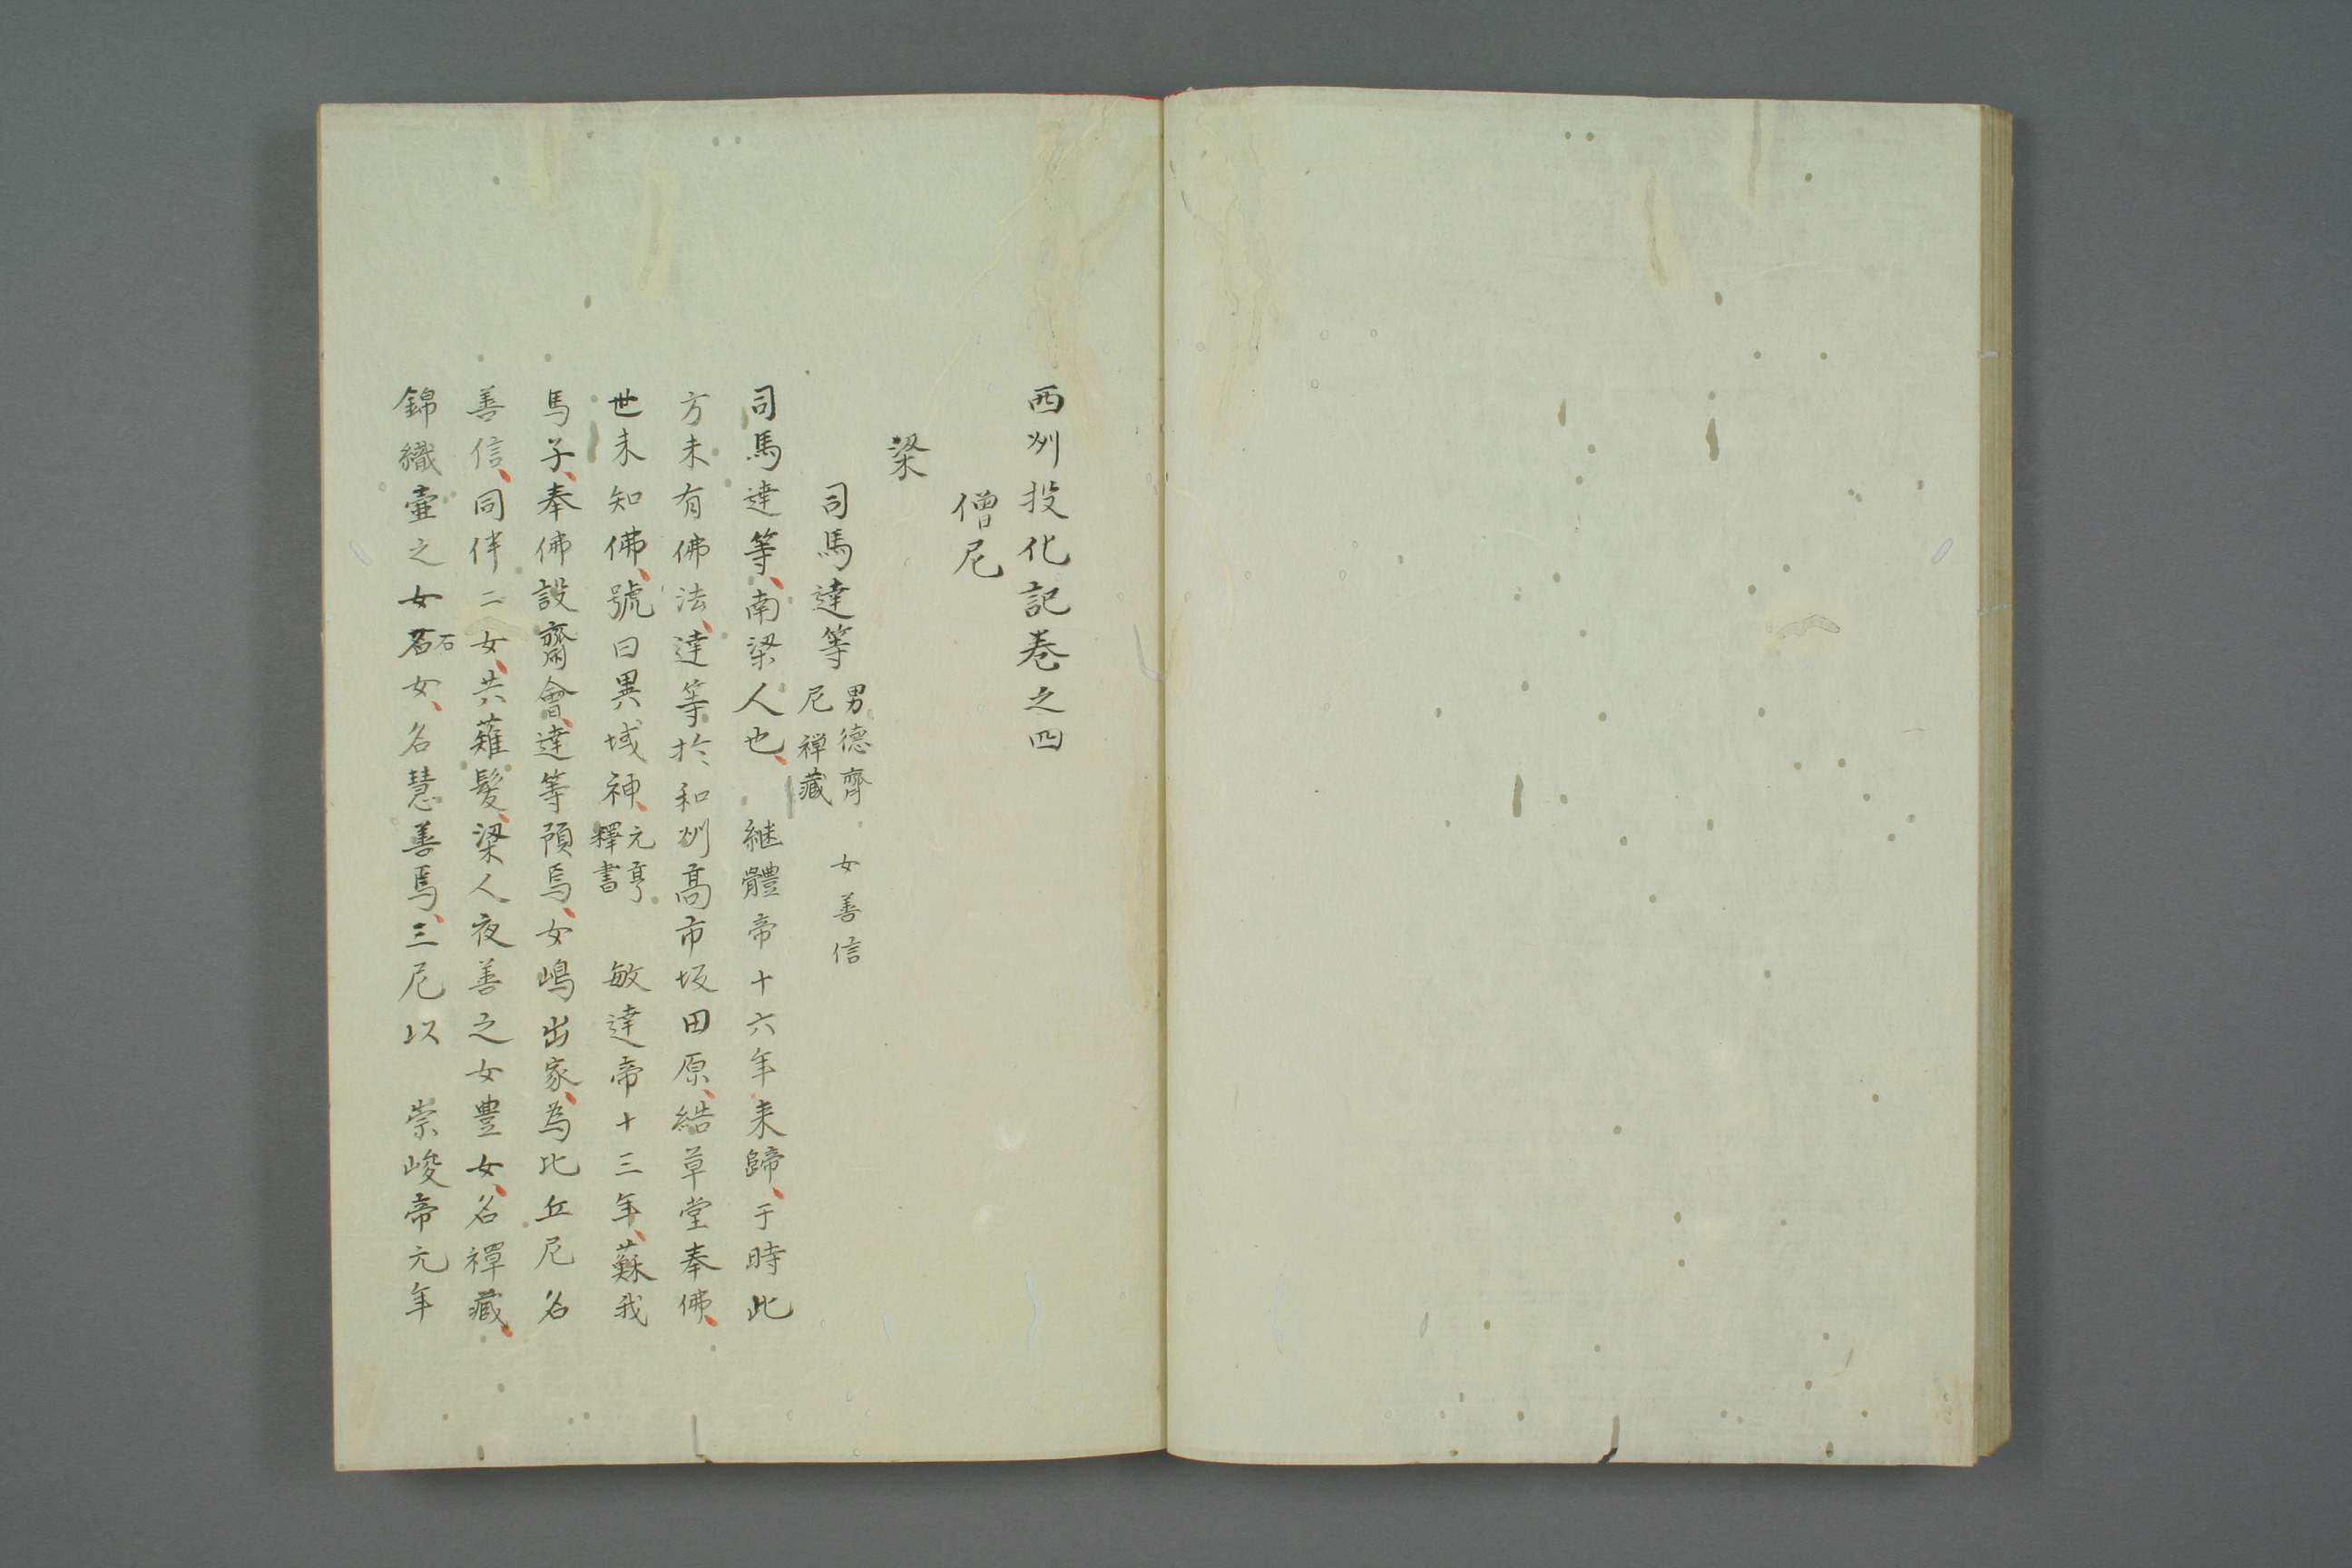 西州投化記巻之四
僧尼
梁
司馬達等 男德齊 女善信 尼禅藏
司馬達等、南梁人也、 継體帝十六年来歸、于時此
方未有佛法、達等於和州髙市坂田原、結草堂奉佛、
世未知佛、號曰異域神、元亨釋書 敏達帝十三年、蘇我
馬子、奉佛設齋會、達等預焉、女嶋出家、為比丘尼名
善信、同伴二女、共薙髪、梁人夜善之女豊女、名禪藏、
錦織壷之女石女、名慧善焉、三尼以 崇峻帝元年